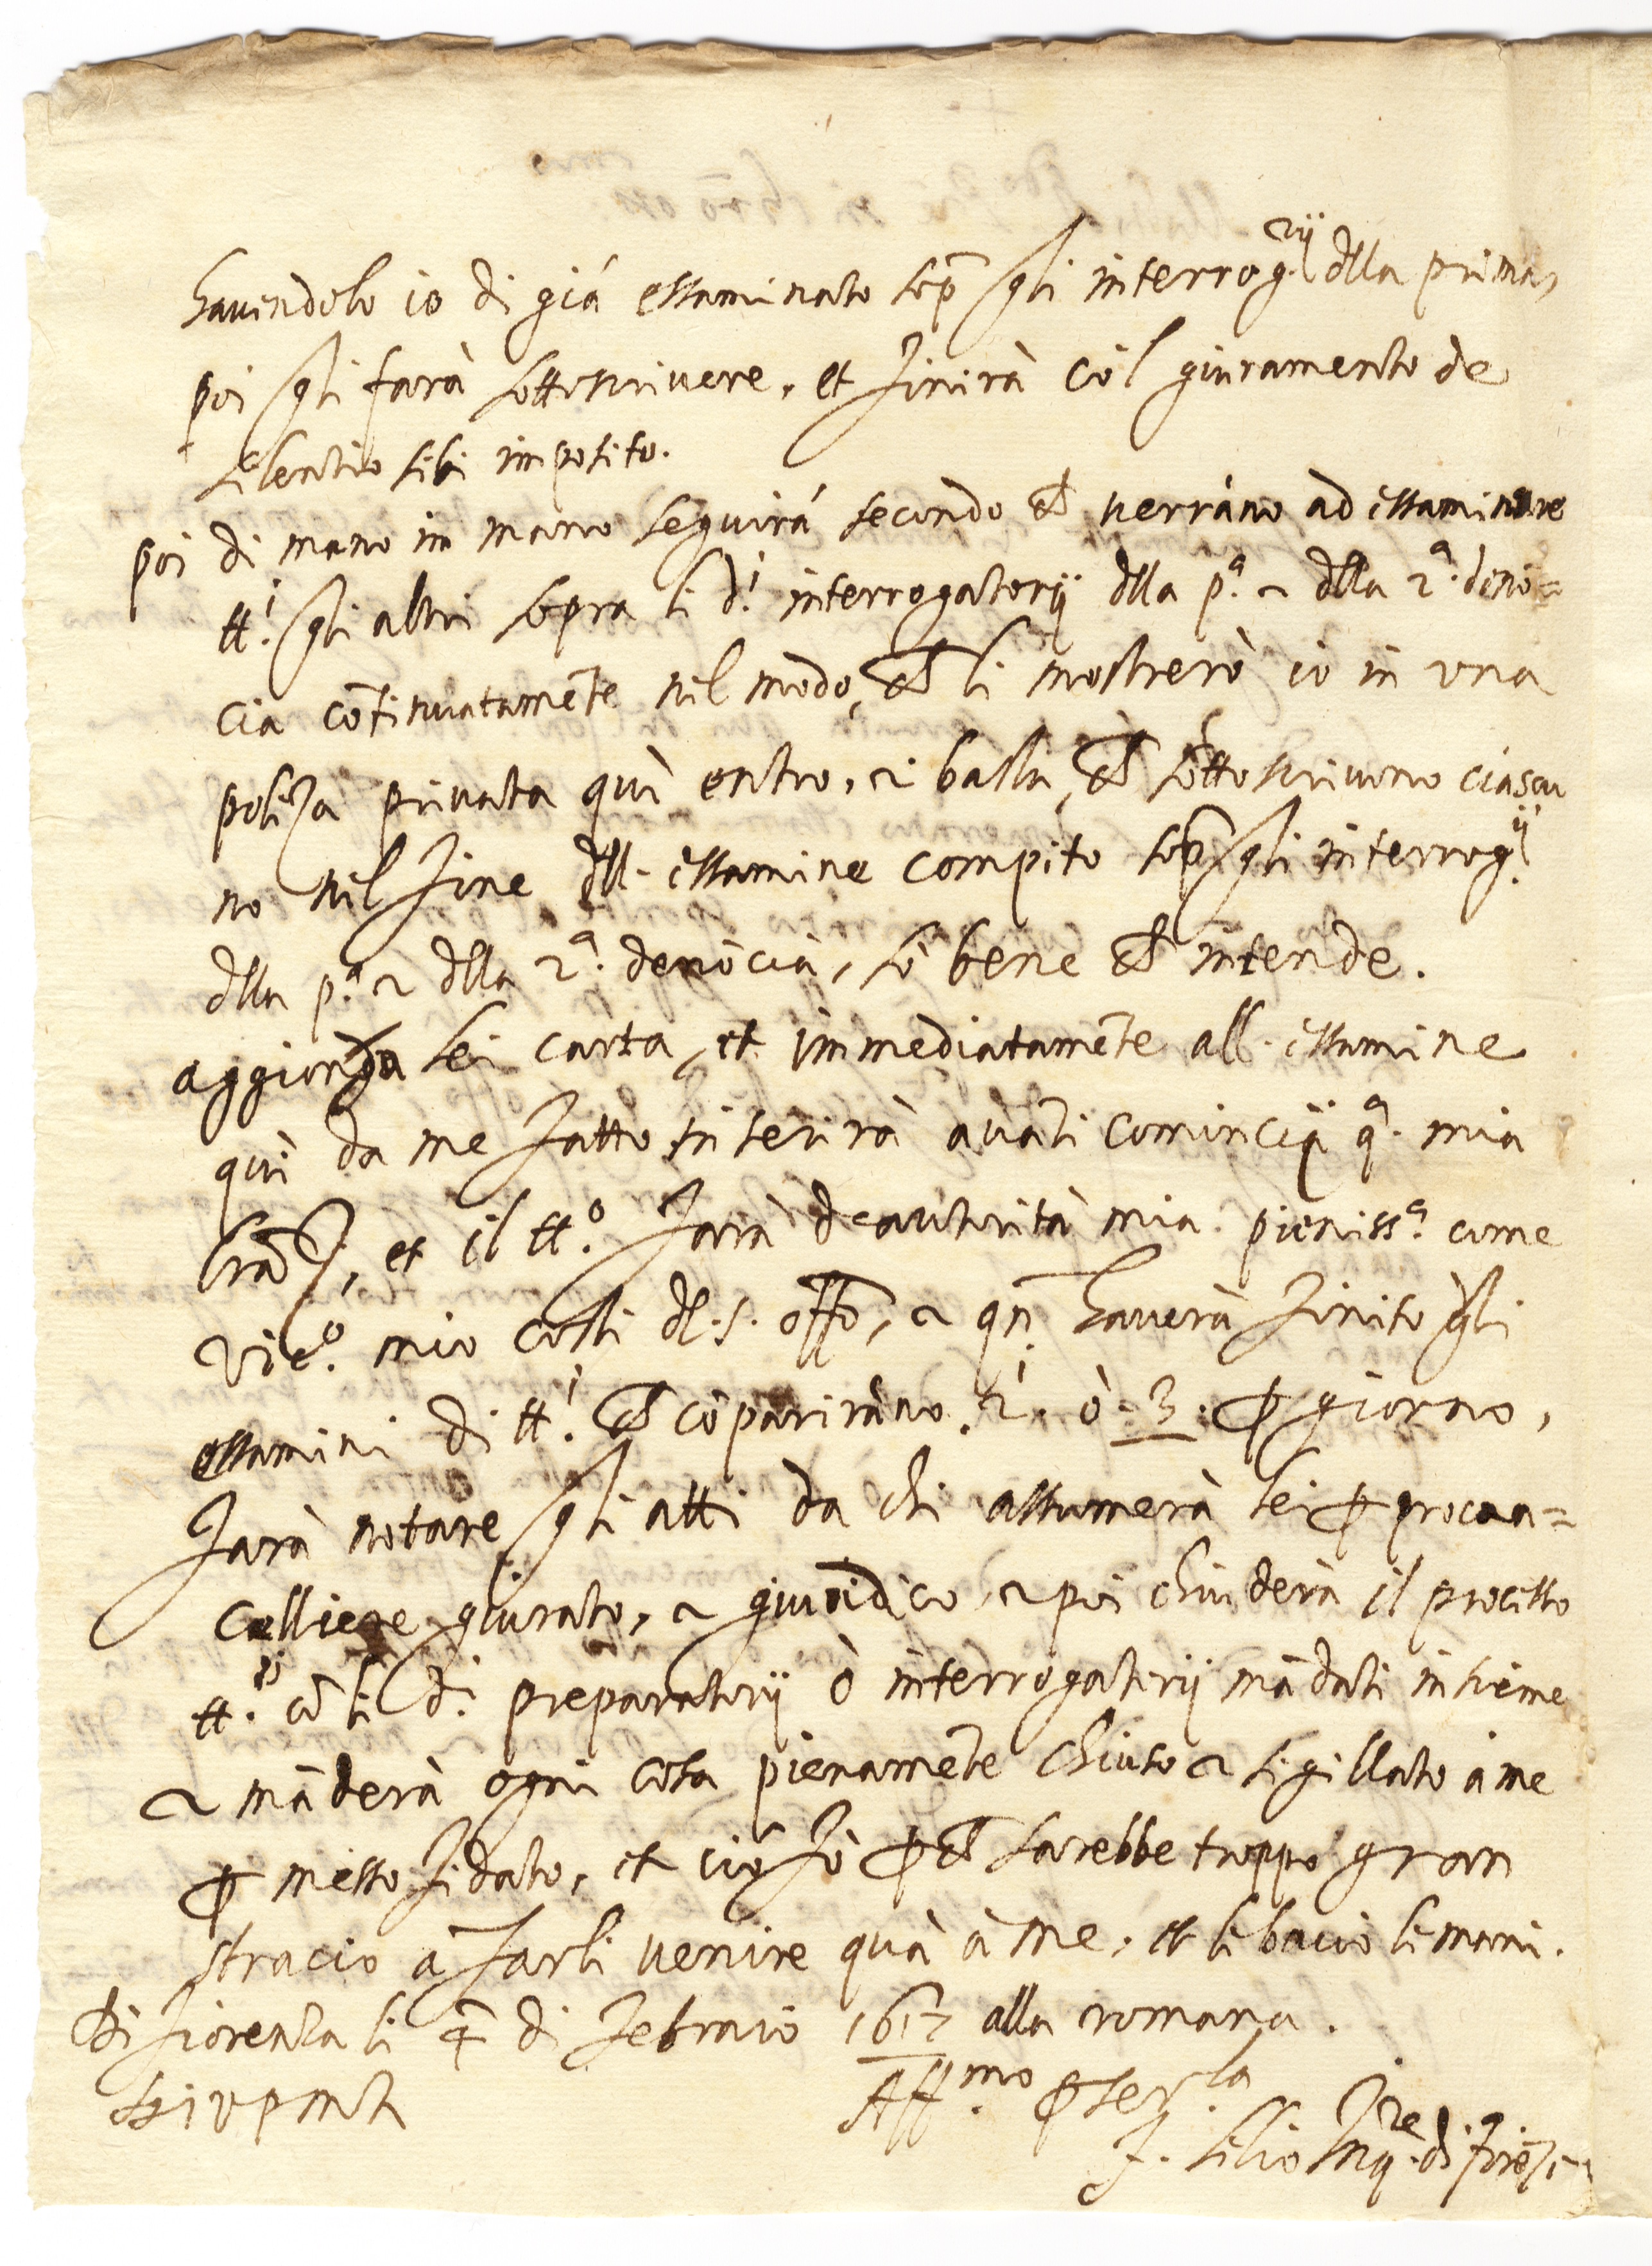 havendolo io di già essaminato sop̄ gli interrog.rij dlla prima,
poi gli farà sottoscrivere, et finirà co'l giuramento de
silentio sibi imposito.
poi di mano in mano seguirà secondo ch̄ verrāno ad essaminare
tt.i gli altri sopra li d.i interrogatorij dlla p.a e dlla 2.a denō=
cia cōtinuatamēte nel modo, ch̄ li mostrerò io in una
poliza privata quì entro, e basta, ch̄ sottoscrivono ciascu
no nel fine dll' essamine compito sop̄ gli interrog.ij
dlla p.a e dlla 2.a denōcia, sò bene ch̄ intende.
aggionga lei carta, et immediatamēte all' essamine
quì da me fatto, inserirà avāti cominci q.a mia
lrā, et il tt.o farà de autorità mia pieniss.a come
Vic.o mio costì dl s. offō, e qn̄ haverà finito gli
essamini di tt.i ch̄ cōparirāno. 2. ò 3. ꝑ giorno,
farà notare gli atti da chi assumerà lei ꝑ procan=
celliere giurato, e giuridico, e poi chiuderà il processo
tt.o cō li d.i preparatorij ò interrogatorij mādati insieme
e māderà ogni cosa pienamēte chiuso e sigillato à me
ꝑ messo fidato, et ciò fò ꝑch̄ sarebbe troppo gran
stracio à farli venire quà à me, et li bacio le mani.
Di Fiorenza li 4 di Febraio 1617 alla romana.
Di V P M R
Aff.mo ꝑ ser.la
F. Lelio Inq.re di Fiorēza